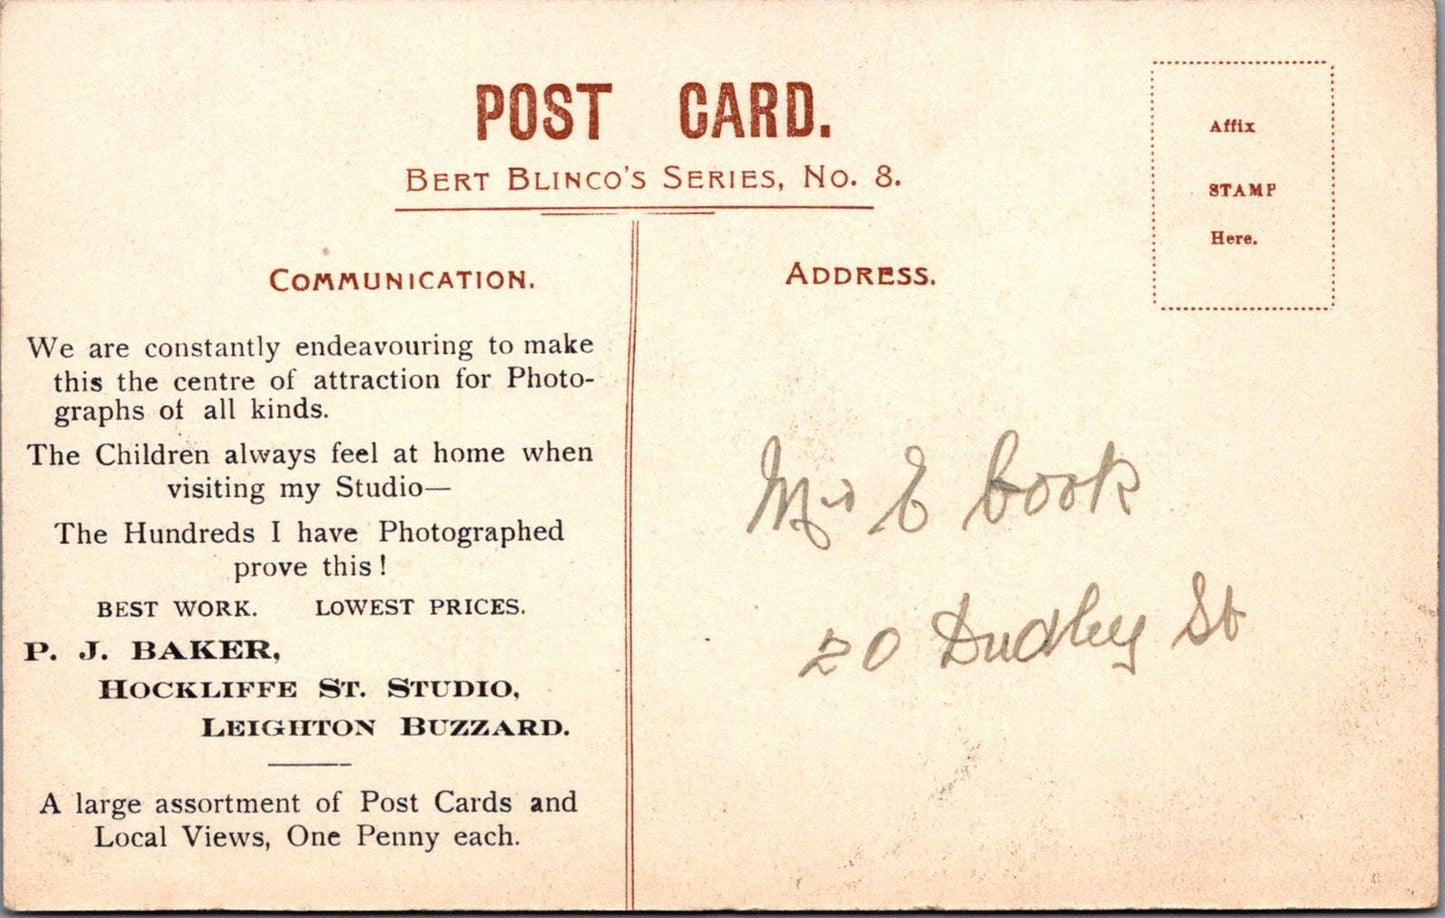 POST CARD.
BERT BLINCO'S SERIES, No. 8.
Affix
STAMP
Here.
COMMUNICATION.
We are constantly endeavouring to make
this the centre of attraction for Photo-
graphs of all kinds.
The Children always feel at home when
visiting my Studio—
The Hundreds I have Photographed
prove this!
BEST WORK. LOWEST PRICES.
P. J. BAKER,
HOCKLIFFE ST. STUDIO,
LEIGHTON BUZZARD.
A large assortment of Post Cards and
Local Views, One Penny each.
ADDRESS.
Mrs E Cook
20 Dudley St